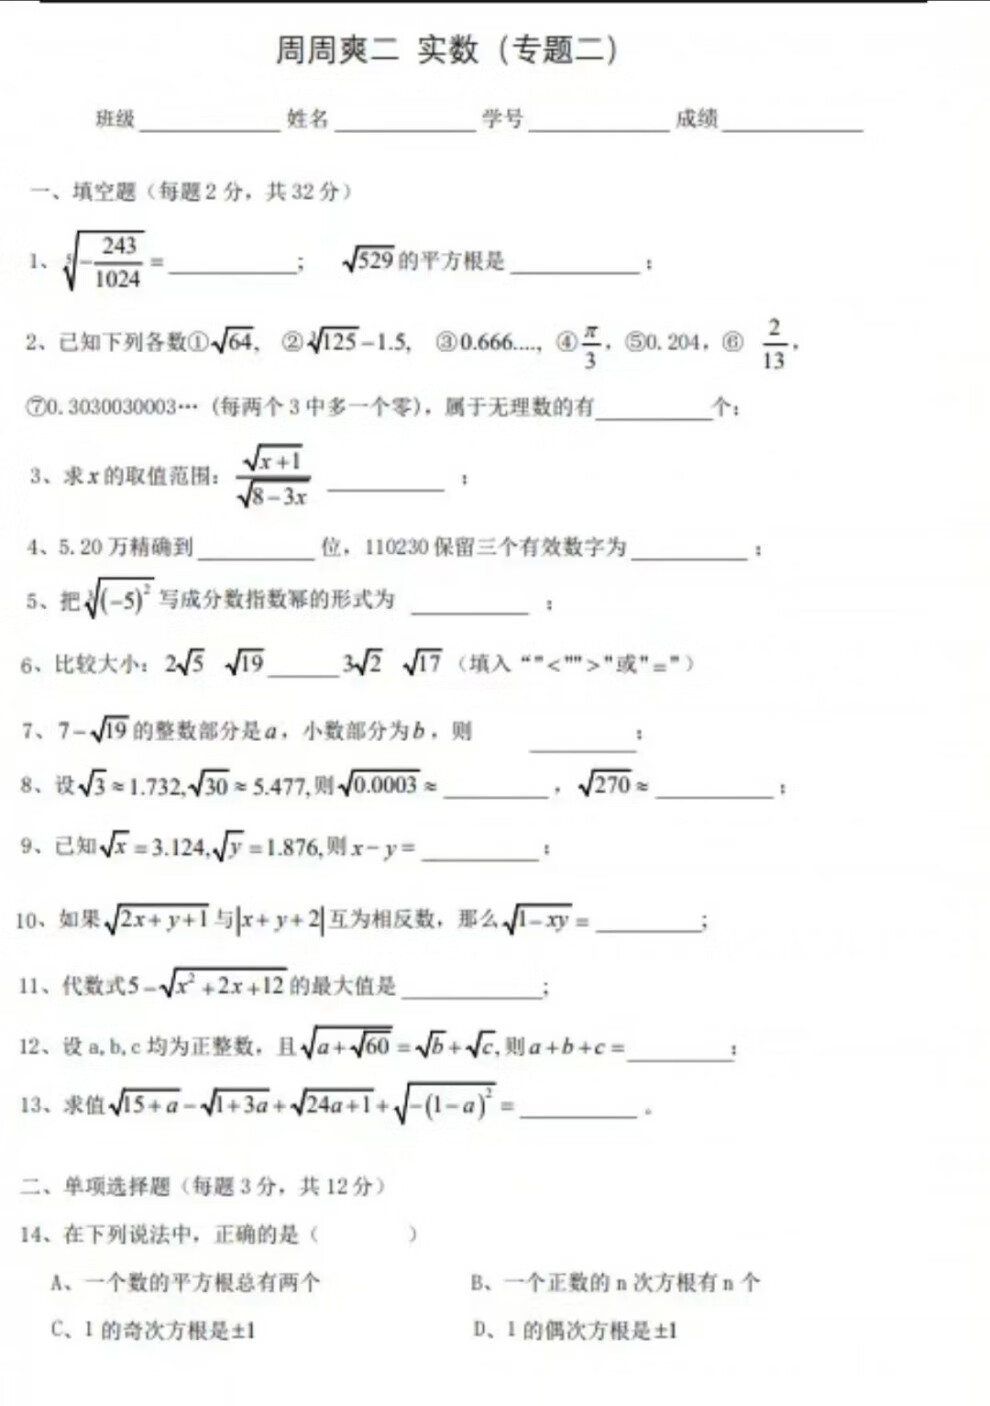 周周爽二 实数（专题二）
班级____________姓名____________学号____________成绩____________
一、填空题（每题2分，共32分）
1、$\sqrt[5]{-\frac{243}{1024}}$=____________； $\sqrt{529}$的平方根是____________；
2、已知下列各数①$\sqrt{64}$, ②$\sqrt[3]{125}-1.5$, ③0.666...., ④$\frac{\pi}{3}$，⑤0.204，⑥ $\frac{2}{13}$，
⑦0.3030030003…（每两个3中多一个零），属于无理数的有__________个；
3、求x的取值范围：$\frac{\sqrt{x+1}}{\sqrt{8-3x}}$ __________；
4、5.20万精确到__________位，110230保留三个有效数字为__________；
5、把$\sqrt[3]{(-5)^2}$写成分数指数幂的形式为 __________；
6、比较大小：$2\sqrt{5}$ $\sqrt{19}$______$3\sqrt{2}$ $\sqrt{17}$（填入“"<"">"或"="）
7、$7-\sqrt{19}$的整数部分是a，小数部分为b，则 _________；
8、设$\sqrt{3}≈1.732,\sqrt{30}≈5.477,$则$\sqrt{0.0003}≈$_________，$\sqrt{270}≈$__________；
9、已知$\sqrt{x}=3.124,\sqrt{y}=1.876,$则$x-y=$__________；
10、如果$\sqrt{2x+y+1}$与$|x+y+2|$互为相反数，那么$\sqrt{1-xy}=$_________；
11、代数式$5-\sqrt{x^2+2x+12}$的最大值是____________；
12、设a,b,c均为正整数，且$\sqrt{a+\sqrt{60}}=\sqrt{b}+\sqrt{c},$则$a+b+c=$_________；
13、求值$\sqrt{15+a}-\sqrt{1+3a}+\sqrt{24a+1}+\sqrt{-(1-a)^2}=$__________。
二、单项选择题（每题3分，共12分）
14、在下列说法中，正确的是（ ）
A、一个数的平方根总有两个 B、一个正数的n次方根有n个
C、1的奇次方根是±1 D、1的偶次方根是±1